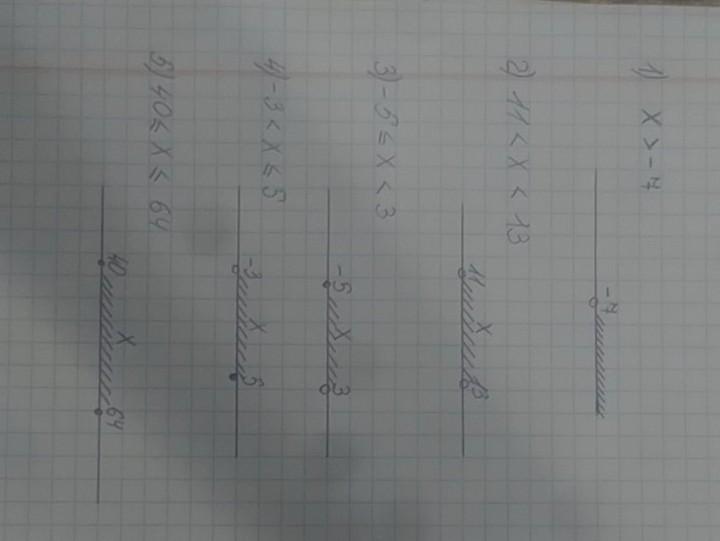 1) x > -7
-7
2) 11 < x < 13
11 x 13
3) -5 ≤ x < 3
-5 x 3
4) -3 < x ≤ 5
-3 x 5
5) 40 ≤ x ≤ 64
40 x 64